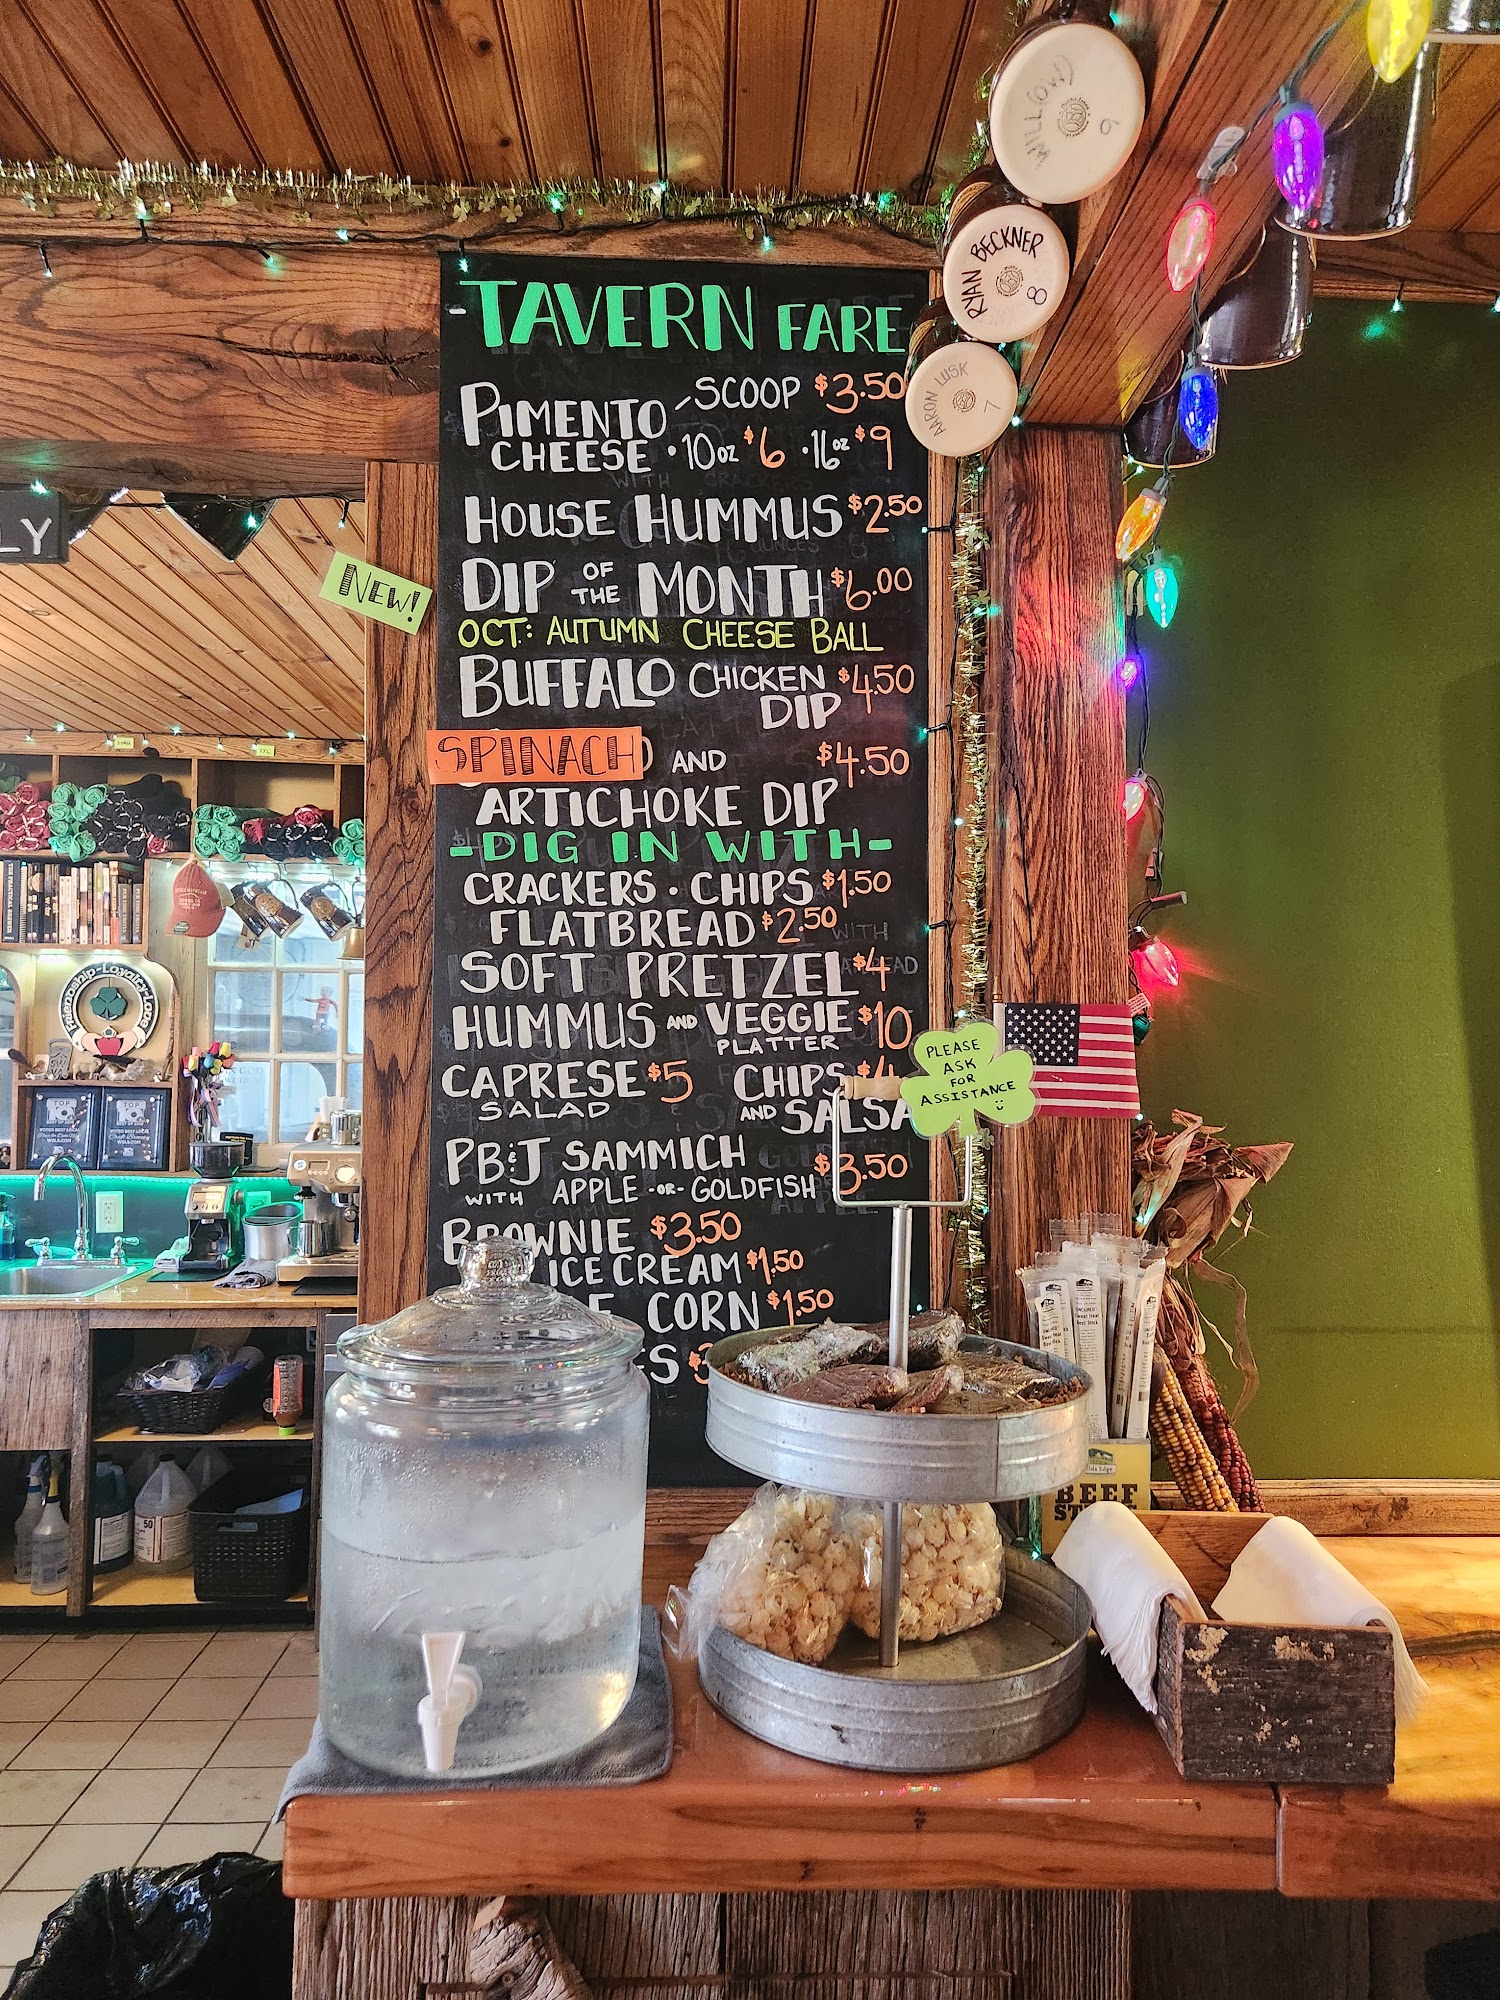 WILL(OW)
6
RYAN BECKNER
8
AARON LUSK
7
LY
NEW!
-TAVERN FARE
PIMENTO CHEESE -SCOOP $3.50
·10oz $6 ·16oz $9
HOUSE HUMMUS $2.50
DIP OF THE MONTH $6.00
OCT: AUTUMN CHEESE BALL
BUFFALO CHICKEN DIP $4.50
SPINACH AND $4.50
ARTICHOKE DIP
-DIG IN WITH-
CRACKERS · CHIPS $1.50
FLATBREAD $2.50
SOFT PRETZEL $4
HUMMUS AND VEGGIE PLATTER $10
CAPRESE SALAD $5
CHIPS AND SALSA $4
PB&J SAMMICH $3.50
WITH APPLE -OR- GOLDFISH
BROWNIE $3.50
ICE CREAM $1.50
CORN $1.50
PLEASE
ASK
FOR
ASSISTANCE
Friendship-Loyalty-Love
TOP 10
TOP 10
BEEF
50